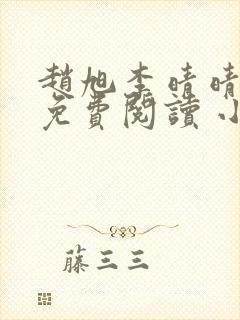 趙旭李晴晴
免費閱讀小
藤三三